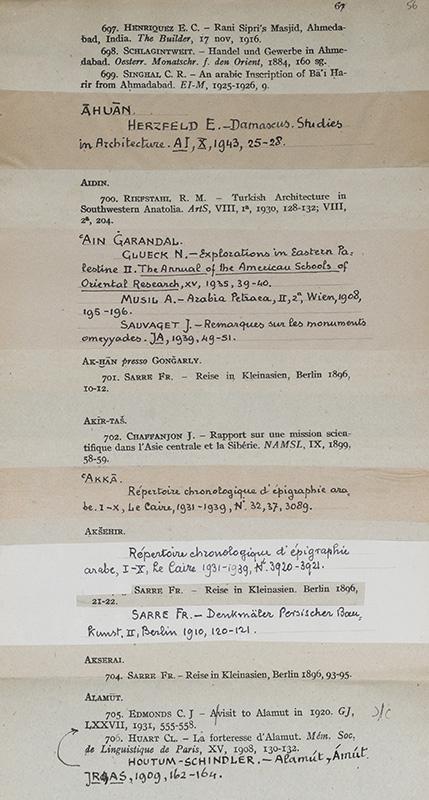 67
56
697. HENRIQUEZ E. C. – Rani Sipri's Masjid, Ahmeda-
bad, India. The Builder, 17 nov, 1916.
698. SCHLAGINTWEIT. – Handel und Gewerbe in Ahme-
dabad. Oesterr. Monatschr. f. den Orient, 1884, 160 sg.
699. SINGHAL C. R. – An arabic Inscription of Bā'ī Ḥa-
rīr from Aḥmadabad. EI-M, 1925-1926, 9.
ĀHUĀN.
HERZFELD E. – Damascus. Studies
in Architecture. AI, X, 1943, 25-28.
AIDIN.
700. RIEFSTAHL R. M. – Turkish Architecture in
Southwestern Anatolia. ArtS, VIII, 1ª, 1930, 128-132; VIII,
2ª, 204.
ʿAIN ĠARANDAL.
GLUECK N. – Explorations in Eastern Pa-
lestine II. The Annual of the American Schools of
Oriental Research, XV, 1935, 39-40.
MUSIL A. – Arabia Petraea, II, 2ª, Wien, 1908,
195-196.
SAUVAGET J. – Remarques sur les monuments
omeyyades. JA, 1939, 49-51.
AK-ḪĀN presso GONGARLY.
701. SARRE FR. – Reise in Kleinasien, Berlin 1896,
10-12.
AKĪR-TAŠ.
702. CHAFFANJON J. – Rapport sur une mission scien-
tifique dans l'Asie centrale et la Sibérie. NAMSL, IX, 1899,
58-59.
ʿAKKĀ.
Répertoire chronologique d'épigraphie ara-
be. I-X, Le Caire, 1931-1939, N. 32, 37, 3089.
AKŠEHIR.
Répertoire chronologique d'épigraphie
arabe, I-X, Le Caire 1931-1939, N. 3920-3921.
SARRE FR. – Reise in Kleinasien. Berlin 1896,
21-22.
SARRE FR. – Denkmäler Persischer Bau-
kunst, II, Berlin 1910, 120-121.
AKSERAI.
704. SARRE FR. – Reise in Kleinasien, Berlin 1896, 93-95.
ALAMŪT.
705. EDMONDS C. J – A visit to Alamut in 1920. GJ,
LXXVII, 1931, 555-558.
706. HUART CL. – La forteresse d'Alamut. Mém. Soc,
de Linguistique de Paris, XV, 1908, 130-132.
HOUTUM-SCHINDLER. – Alamút, Ámút.
JRAS, 1909, 162-164.